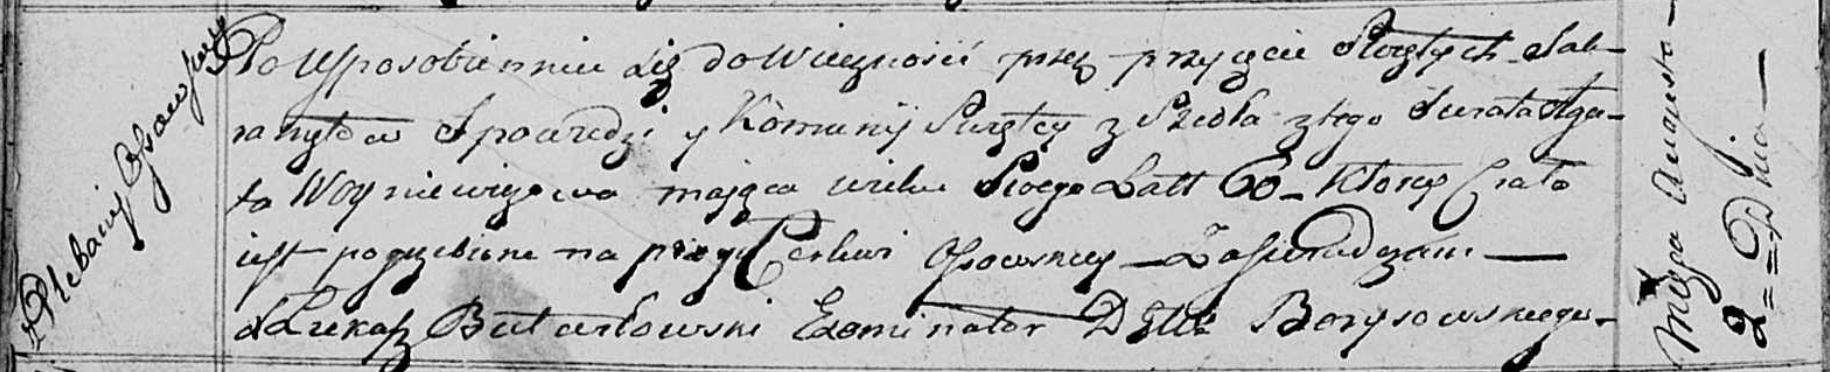 z Plebanij Osowskiey
Po Usposobienniu się do Wiecznosci przez przyięcie Swiętych Sak-
ramętow Spowiedzi y Komunij Swiętey z Siedła ztego Swiata Aga-
ta Woyniewiczowa mająca wieku Swego Latt 60 - Ktorey Ciało
iest pogrzebione na przy Cerkwi Osowskiey - Zaswiadczam -
X Łukasz Butwiłowski Exominator D Borysowskiego -
Msca Augusta -
2 == Dnia -